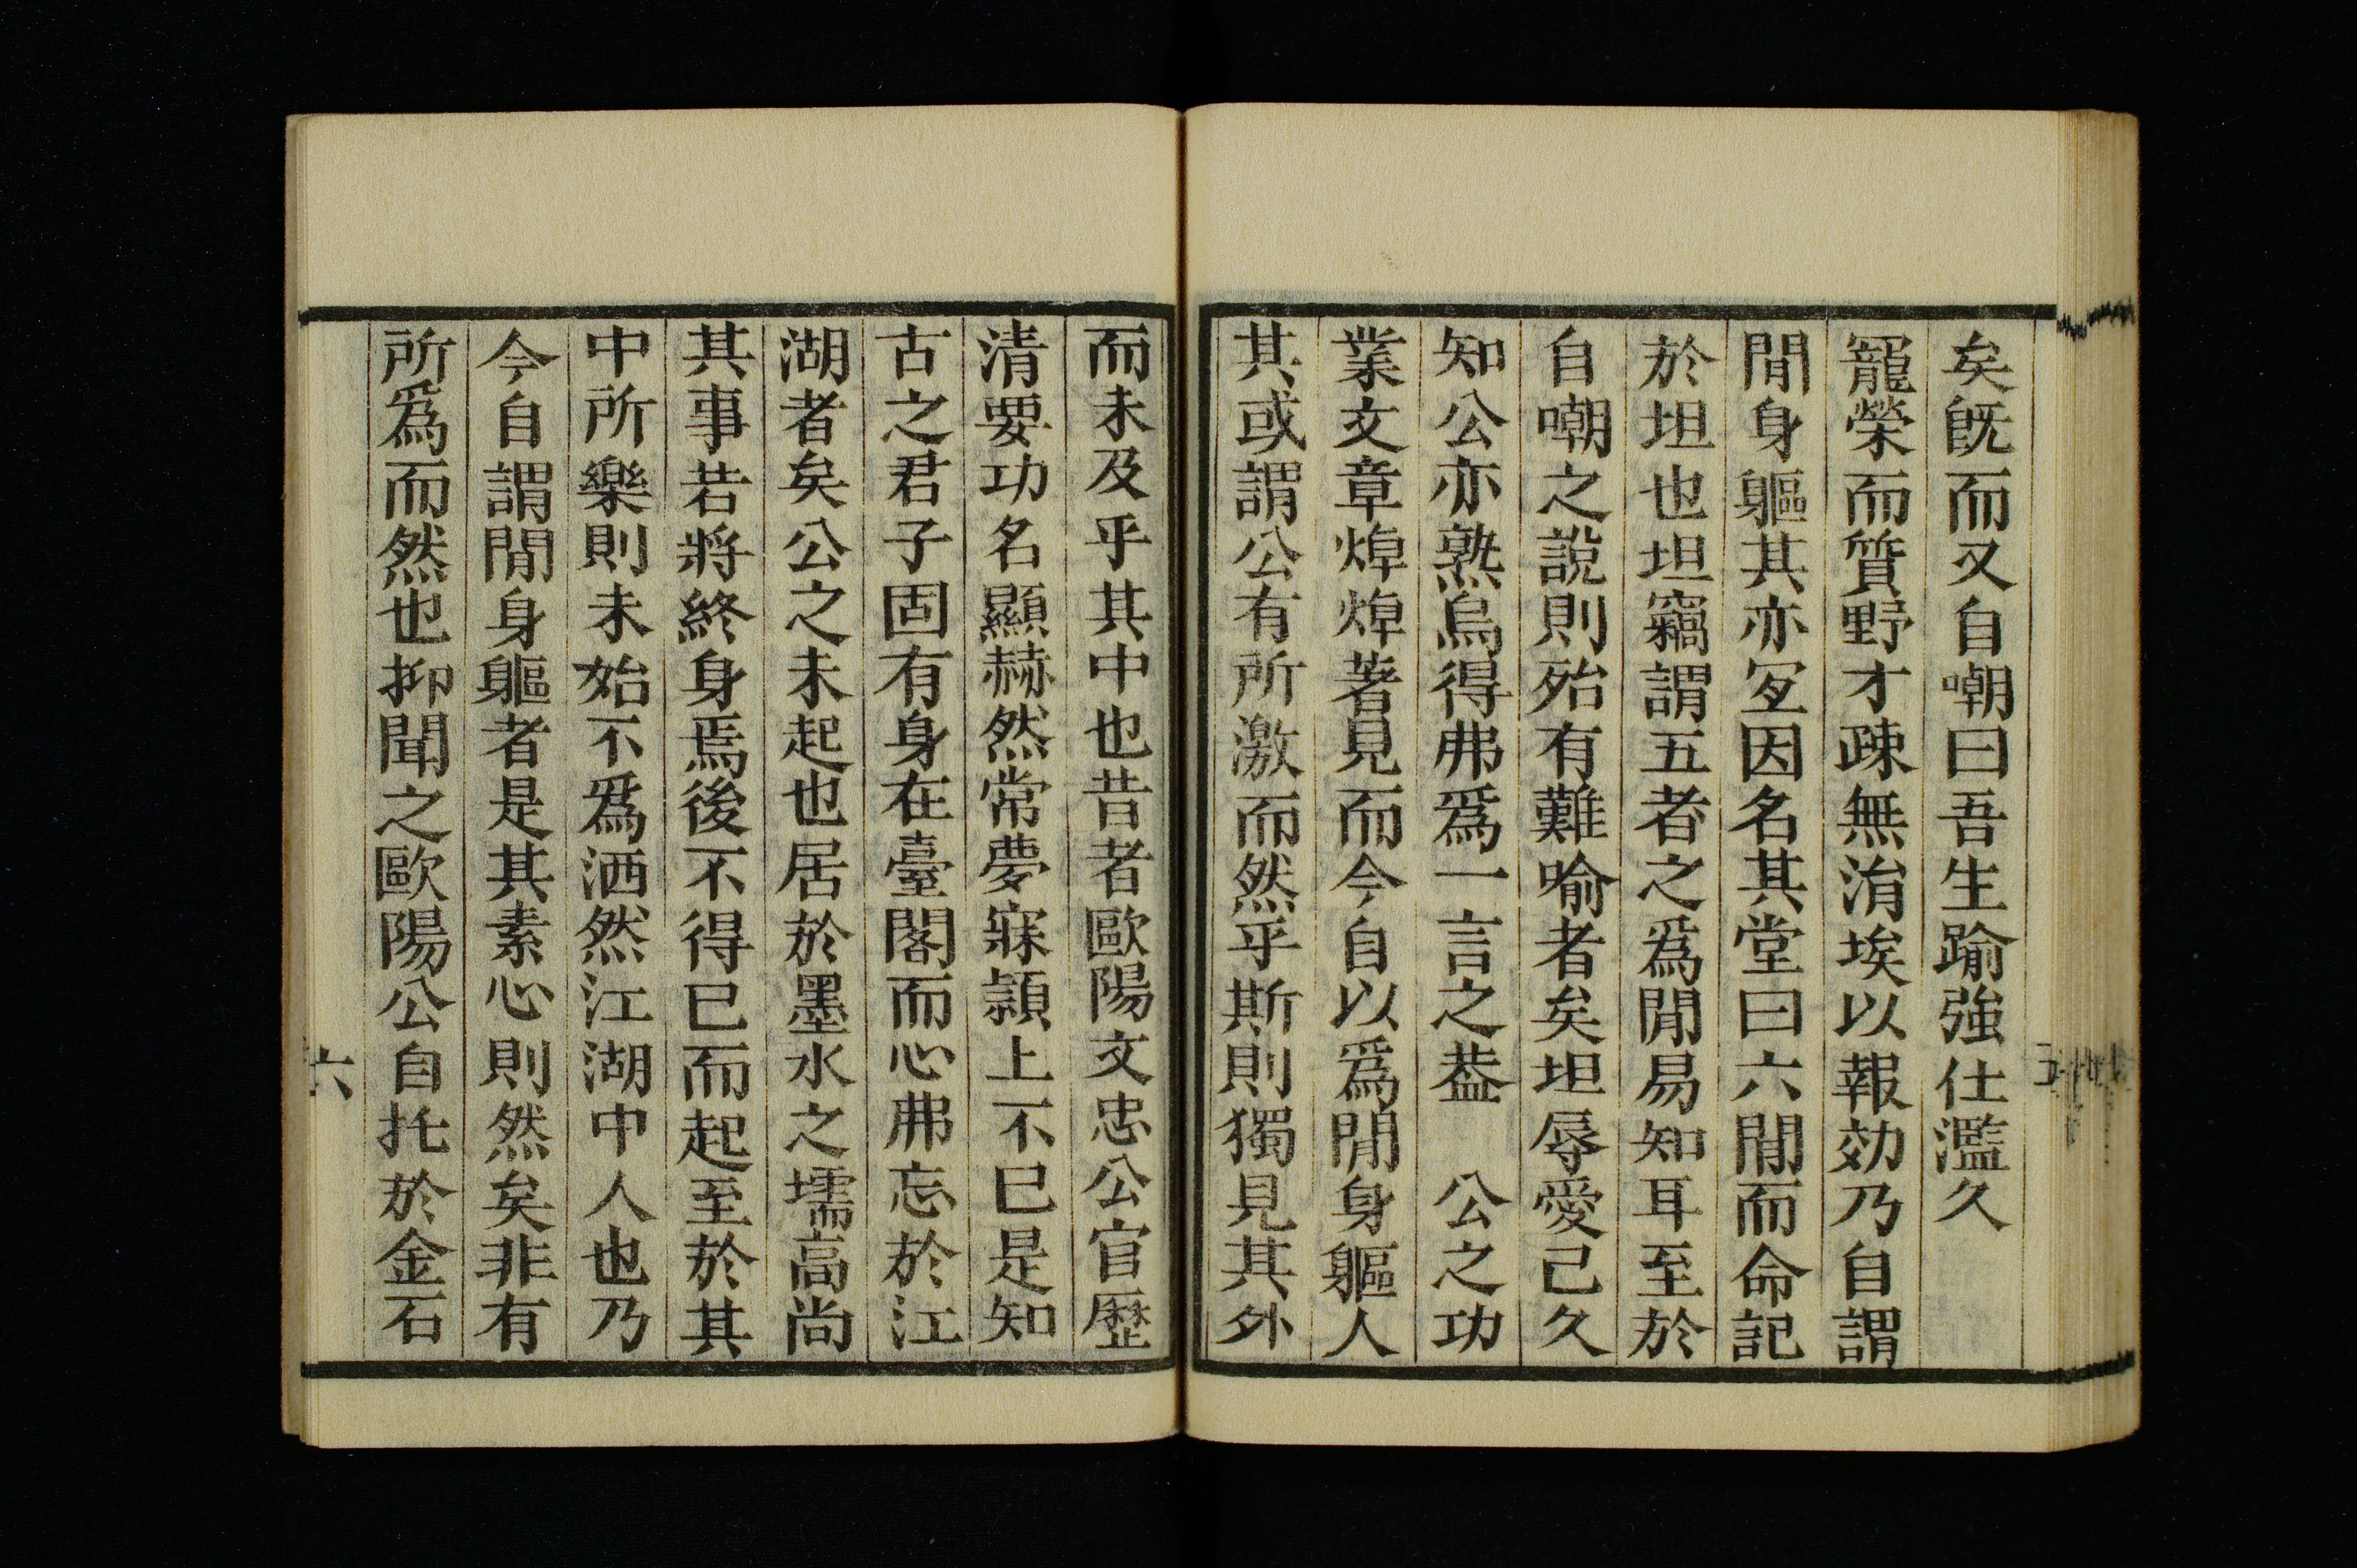 矣旣而又自嘲曰吾生踰強仕濫久
寵榮而質野才疎無涓埃以報効乃自謂
閒身軀其亦冝因名其堂曰六閒而命記
於坦也坦竊謂五者之爲閒易知耳至於
自嘲之說則殆有難喻者矣坦辱愛己久
知公亦熟烏得弗爲一言之葢　公之功
業文章煒煒著見而今自以爲閒身軀人
其或謂公有所激而然乎斯則獨見其外
而未及乎其中也昔者歐陽文忠公官歷
清要功名顯赫然常夢寐潁上不已是知
古之君子固有身在臺閣而心弗忘於江
湖者矣公之未起也居於墨水之壖高尚
其事若將終身焉後不得已而起至於其
中所樂則未始不爲洒然江湖中人也乃
今自謂閒身軀者是其素心則然矣非有
所爲而然也抑聞之歐陽公自托於金石
六